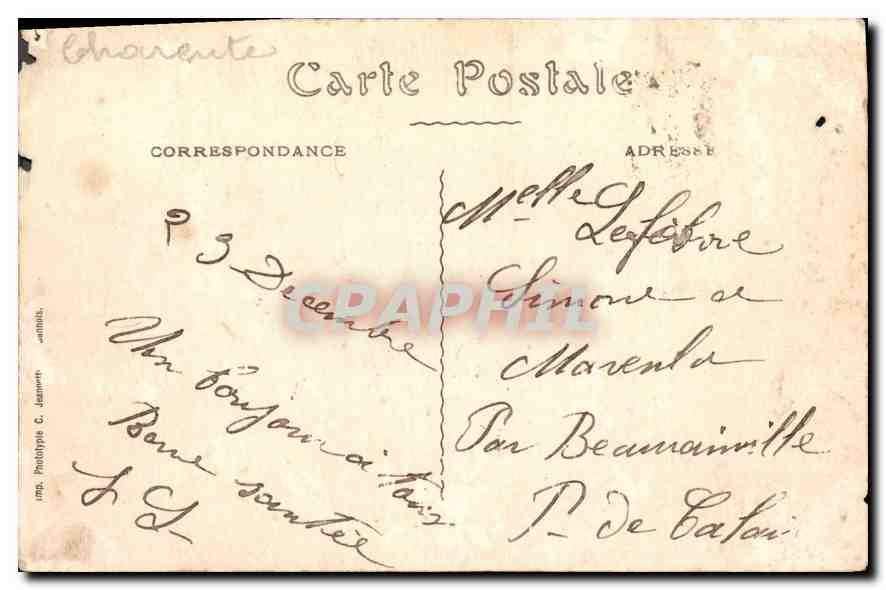 Charente
Carte Postale
CORRESPONDANCE
ADRESSE
3 Decembre
Un bonjour a tous
Bonne santée
L S
Melle Lefebvre
Simone a
Marenla
Par Beaurainville
P. de Calai
Imp. Phototypie C.
CPAPHIL